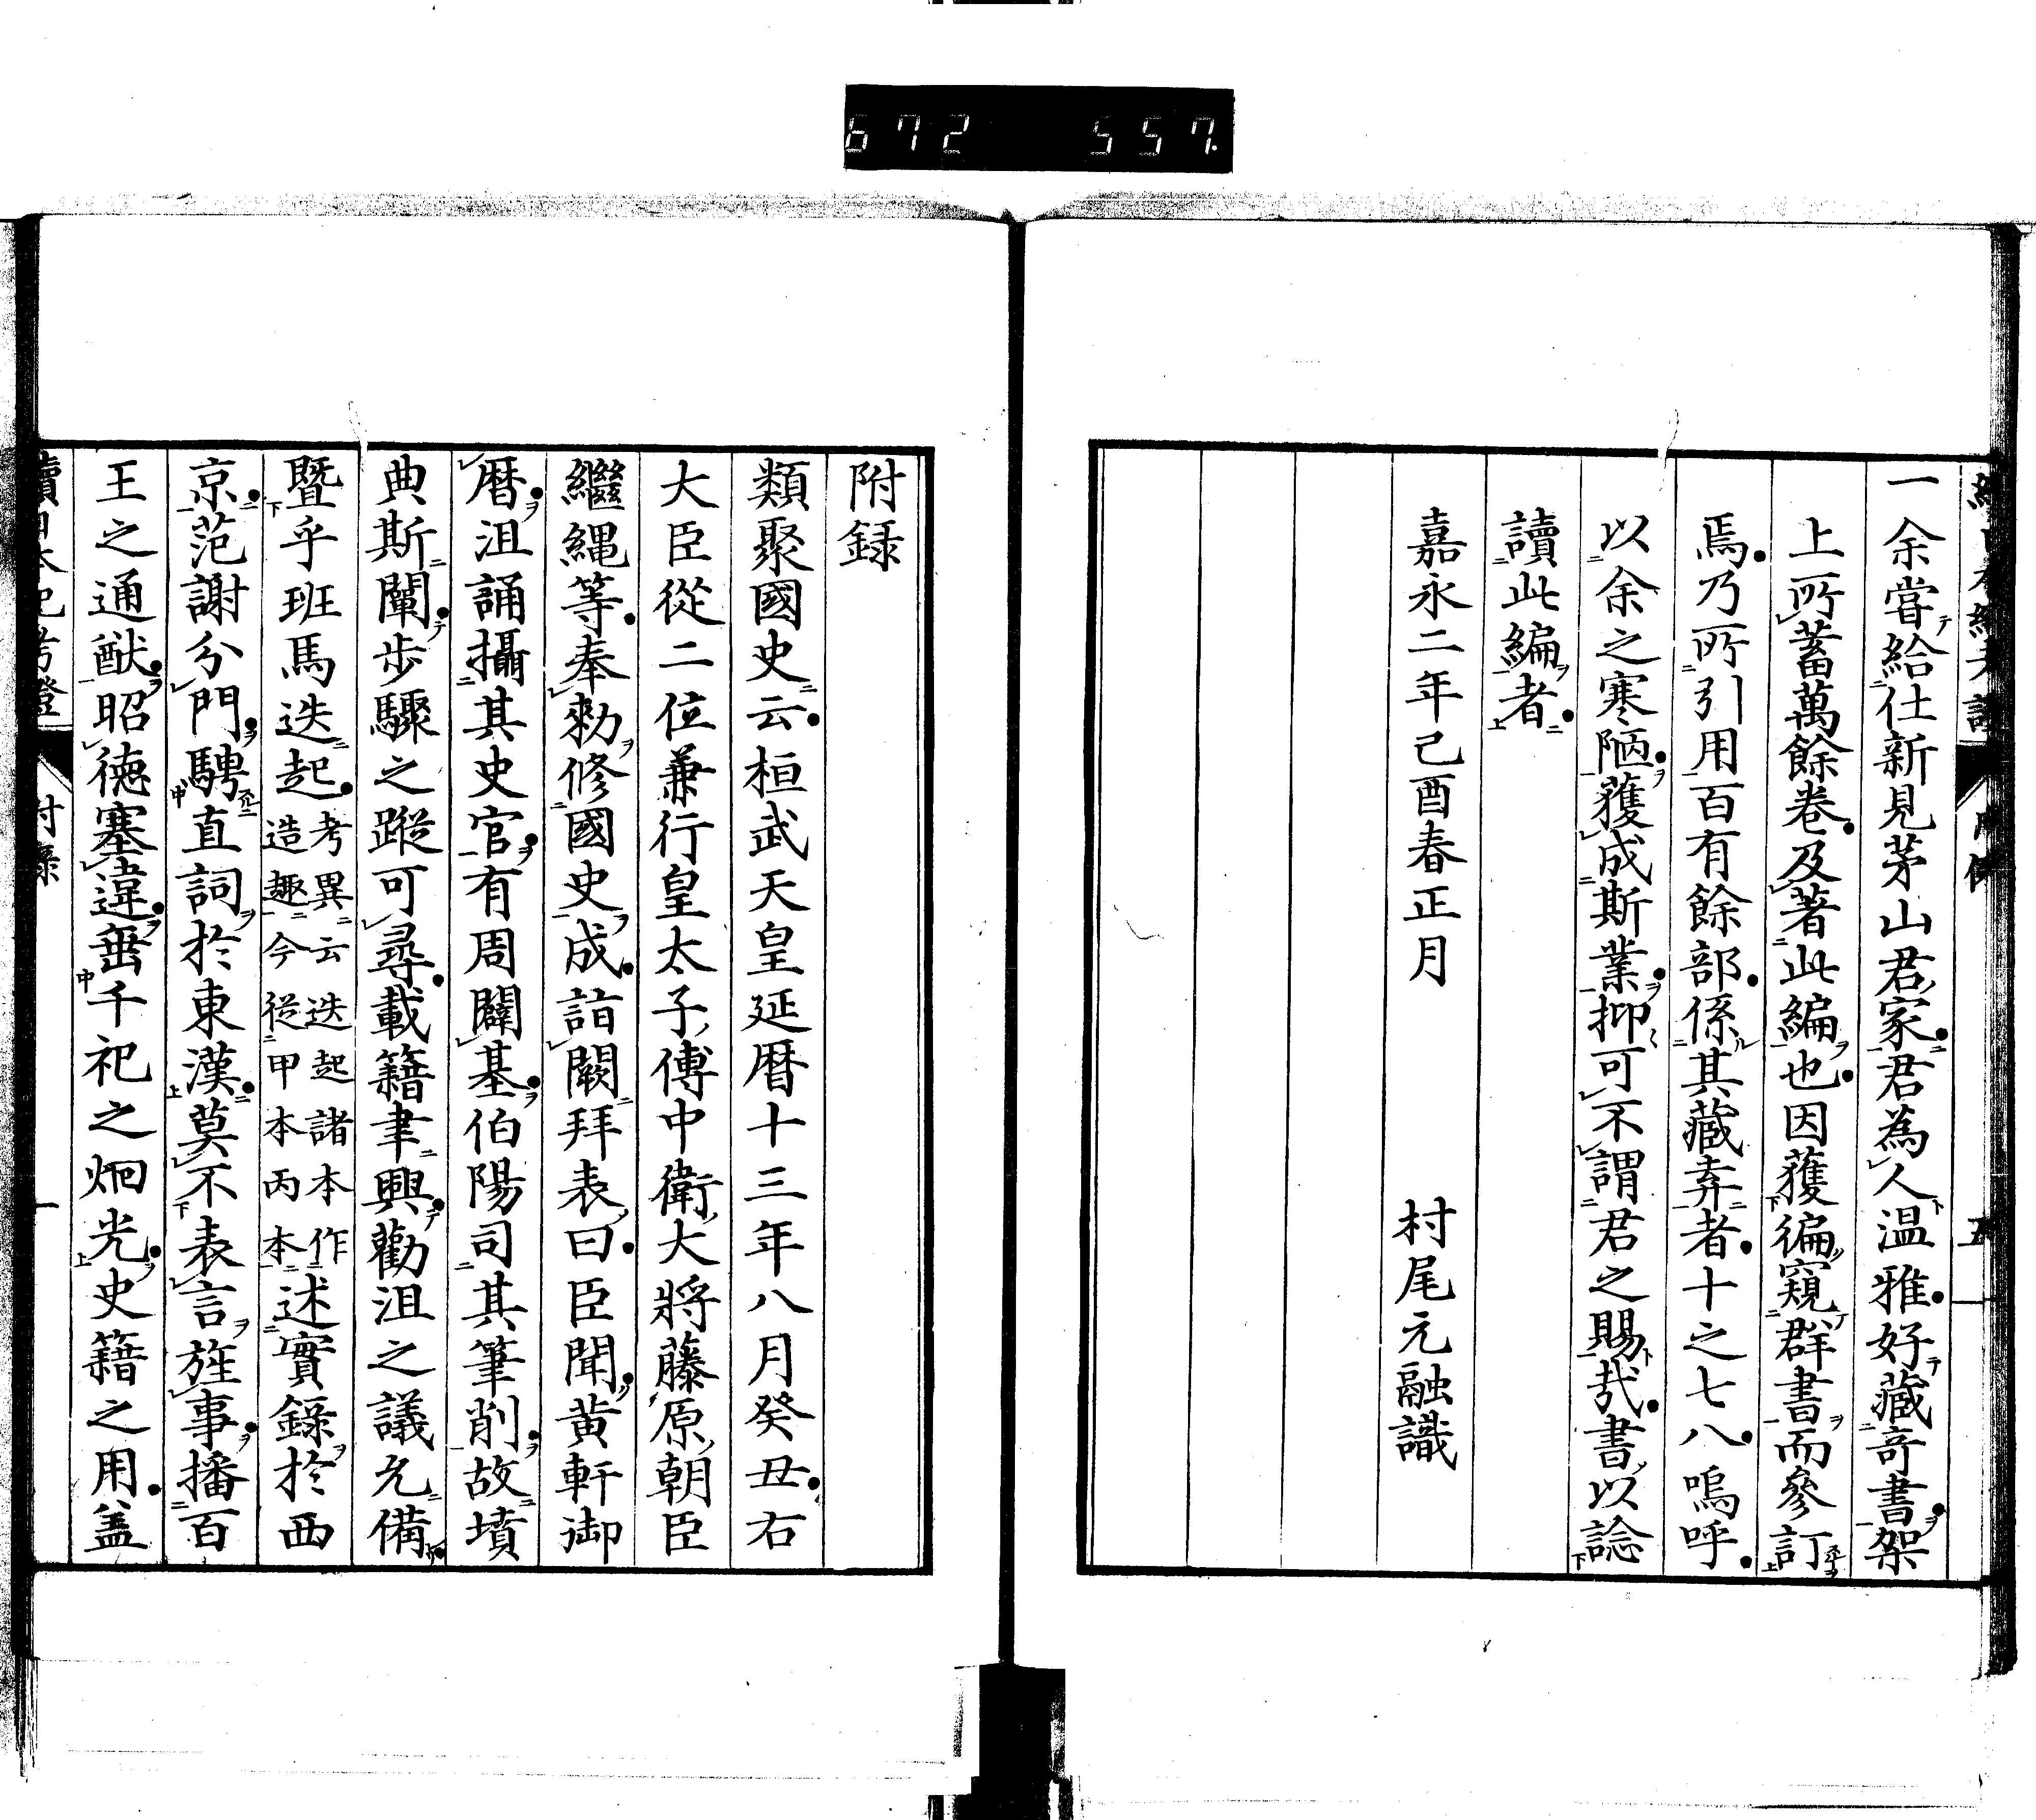 672 557
一余嘗給仕新見茅山君家君為人温雅好藏奇書架
上所蓄萬餘卷及著此編也因獲徧窺群書而參訂
焉乃所引用百有餘部係其藏弆者十之七八嗚呼
以余之寒陋獲成斯業抑可不謂君之賜哉書以諗
讀此編者
嘉永二年己酉春正月 村尾元融識
附録
類聚國史云桓武天皇延暦十三年八月癸丑右
大臣從二位兼行皇太子傅中衛大將藤原朝臣
繼縄等奉勅修國史成詣闕拜表曰臣聞黄軒御
暦沮誦攝其史官有周闢基伯陽司其筆削故墳
典斯闡步驟之蹤可尋載籍聿興勸沮之議允備
暨乎班馬迭起考異云迭起諸本作造趣今從甲本丙本述實録於西
京范謝分門騁直詞於東漢莫不表言旌事播百
王之通猷昭徳塞違垂千祀之炯光史籍之用盖
續日本紀考證 附錄 一